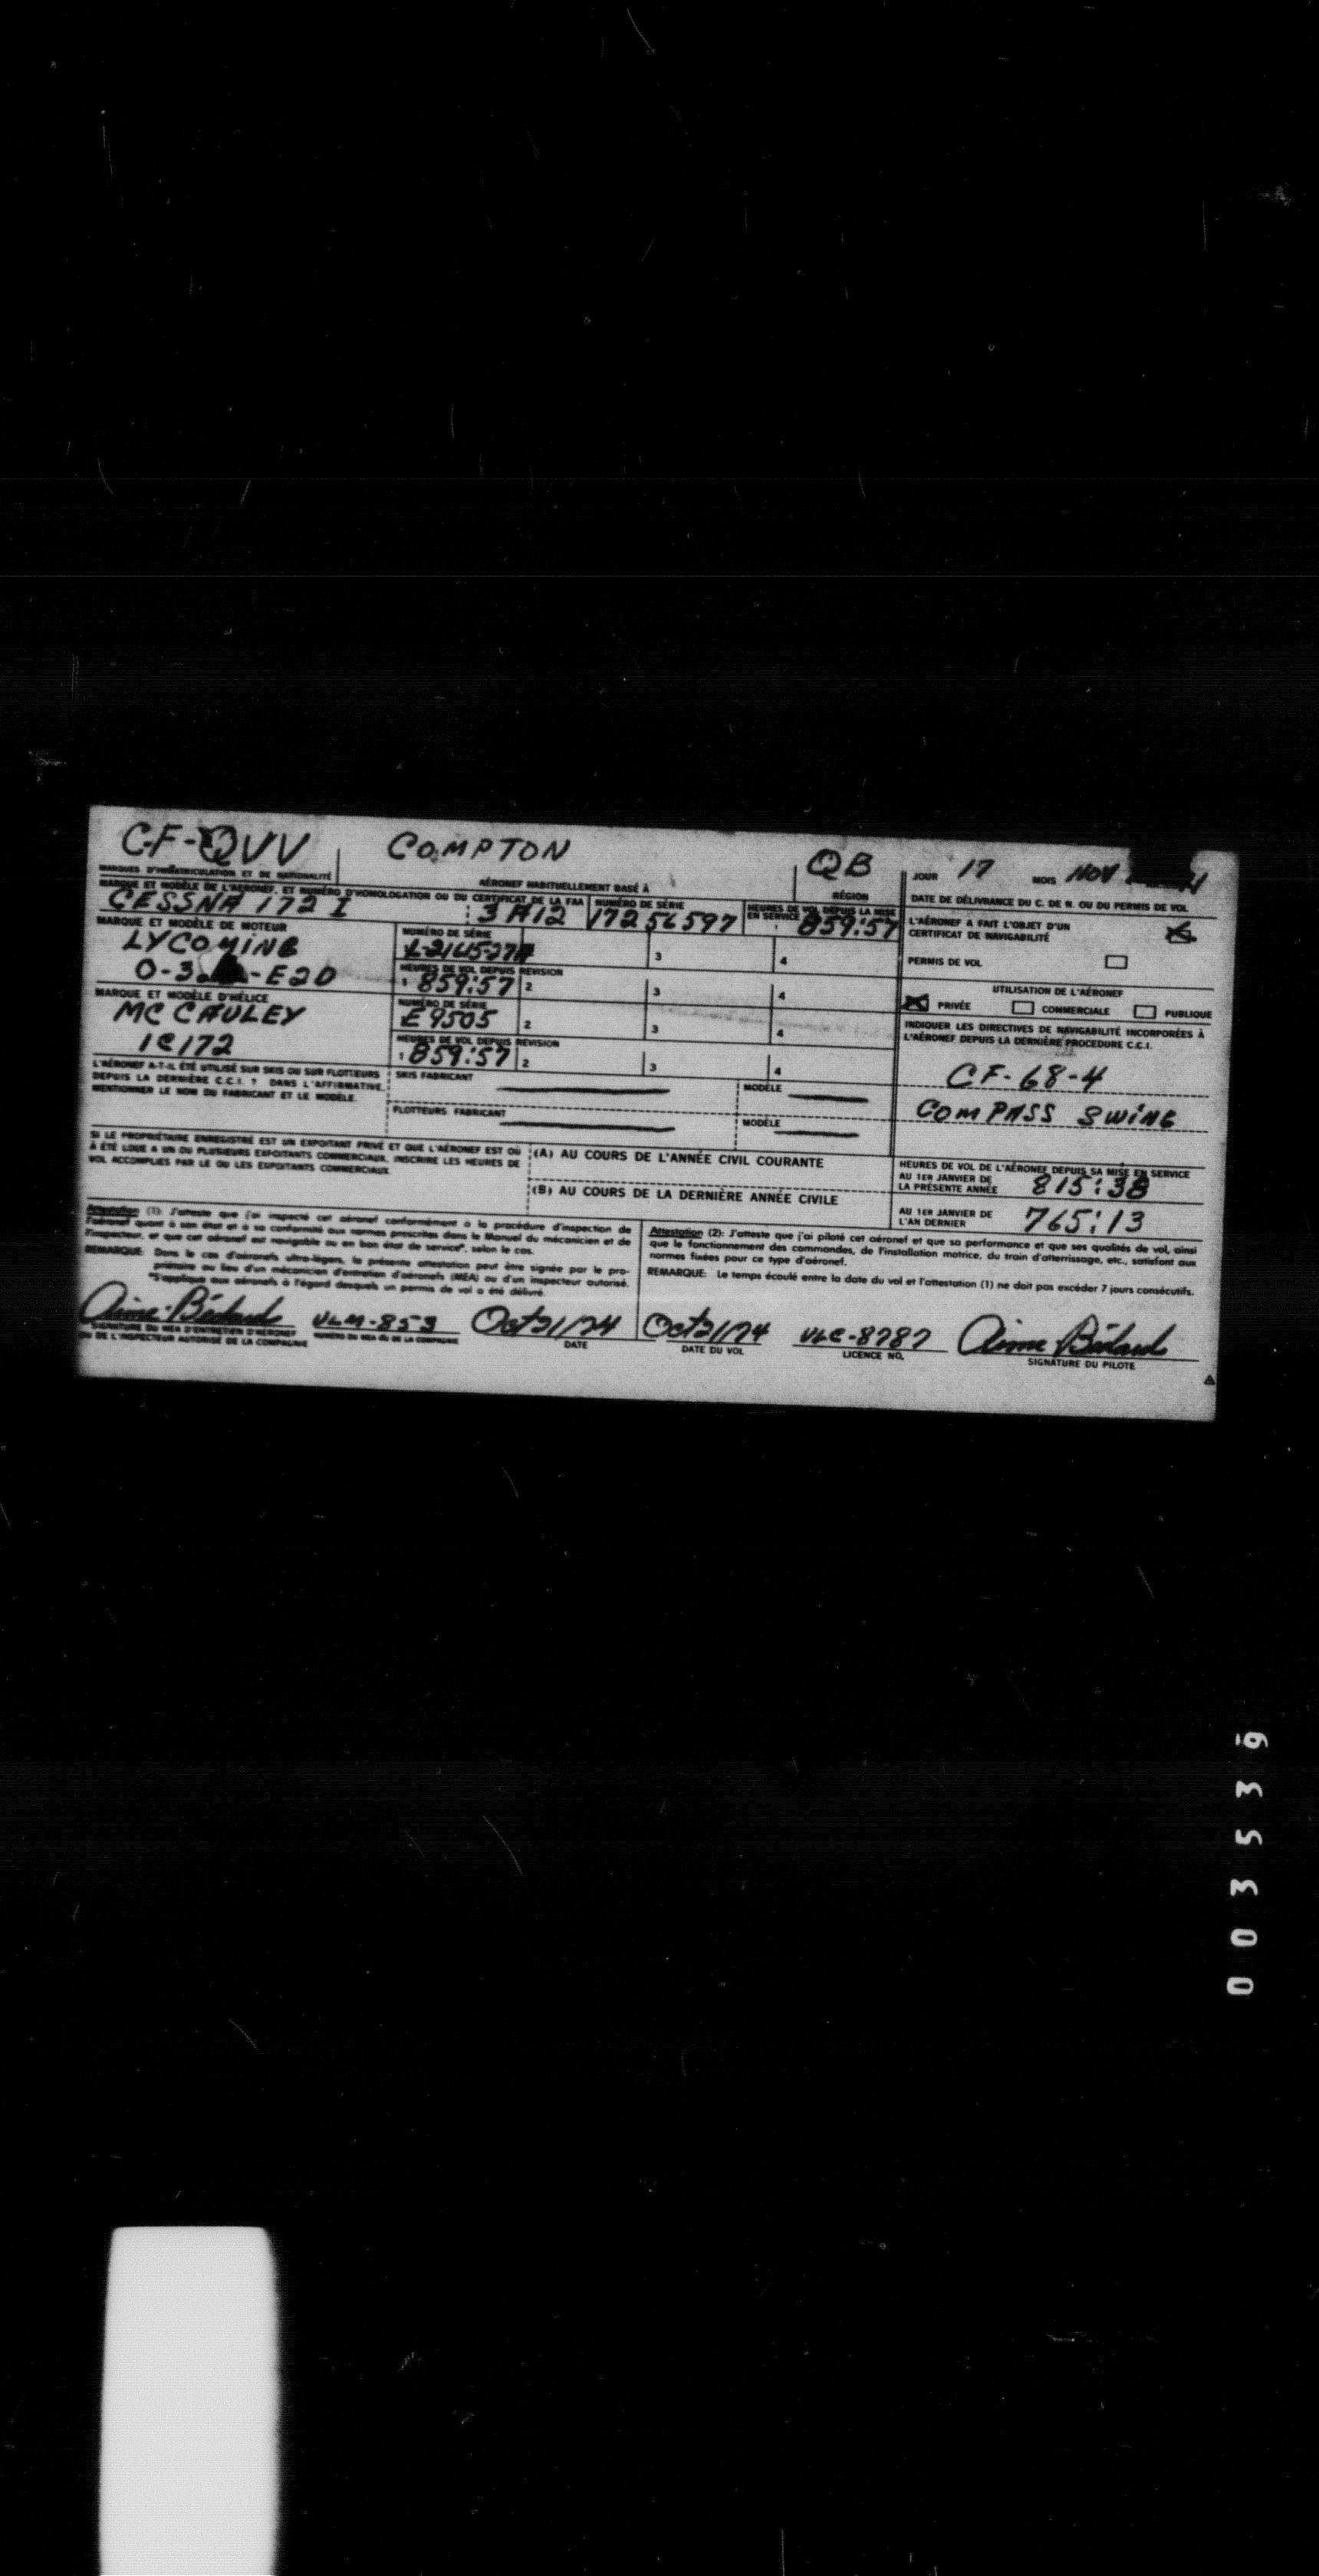 CF-QVV COMPTON QB JOUR 17 MOIS NOV
MARQUES D'IMMATRICULATION ET DE NATIONALITÉ AÉRONEF HABITUELLEMENT BASÉ À RÉGION DATE DE DÉLIVRANCE DU C. DE N. OU DU PERMIS DE VOL
MARQUE ET MODÈLE DE L'AÉRONEF, ET NUMÉRO D'HOMOLOGATION OU DU CERTIFICAT DE LA FAA NUMÉRO DE SÉRIE HEURES DE VOL DEPUIS LA MISE EN SERVICE
CESSNA 172 I 3A12 17256597 859:57
L'AÉRONEF A FAIT L'OBJET D'UN
CERTIFICAT DE NAVIGABILITÉ
PERMIS DE VOL
MARQUE ET MODÈLE DE MOTEUR NUMÉRO DE SÉRIE
LYCOMING 3 4
O-3 -E2D HEURES DE VOL DEPUIS REVISION
1 859:57 2 3 4
UTILISATION DE L'AÉRONEF
PRIVÉE COMMERCIALE PUBLIQUE
MARQUE ET MODÈLE D'HÉLICE NUMÉRO DE SÉRIE
MC CAULEY E9505 2 3 4
1C172 HEURES DE VOL DEPUIS REVISION
1 859:57 2 3 4
INDIQUER LES DIRECTIVES DE NAVIGABILITÉ INCORPORÉES À
L'AÉRONEF DEPUIS LA DERNIÈRE PROCEDURE C.C.I.
CF-68-4
COMPASS SWING
L'AÉRONEF A-T-IL ÉTÉ UTILISÉ SUR SKIS OU SUR FLOTTEURS
DEPUIS LA DERNIÈRE C.C.I. ? DANS L'AFFIRMATIVE,
MENTIONNER LE NOM DU FABRICANT ET LE MODÈLE.
SKIS FABRICANT MODÈLE
FLOTTEURS FABRICANT MODÈLE
SI LE PROPRIÉTAIRE ENREGISTRÉ EST UN EXPOITANT PRIVÉ ET QUE L'AÉRONEF EST OÙ
À ÉTÉ LOUE A UN OU PLUSIEURS EXPOITANTS COMMERCIAUX, INSCRIRE LES HEURES DE
VOL ACCOMPLIES PAR LE OU LES EXPOITANTS COMMERCIAUX.
(A) AU COURS DE L'ANNÉE CIVIL COURANTE
(B) AU COURS DE LA DERNIÈRE ANNÉE CIVILE
HEURES DE VOL DE L'AÉRONEF DEPUIS SA MISE EN SERVICE
AU 1ER JANVIER DE
LA PRÉSENTE ANNÉE 815:38
AU 1ER JANVIER DE
L'AN DERNIER 765:13
Attestation (1): J'atteste que j'ai inspecté cet aéronef conformément à la procédure d'inspection de
l'aéronef quant à son état et à sa conformité aux normes prescrites dans le Manuel du mécanicien et de
l'inspecteur, et que cet aéronef est navigable ou en bon état de service*, selon le cas.
REMARQUE: Dans le cas d'aéronefs ultra-légers, la présente attestation peut être signée par le pro-
priétaire au lieu d'un mécanicien d'entretien d'aéronefs (MEA) ou d'un inspecteur autorisé.
*S'applique aux aéronefs à l'égard desquels un permis de vol a été délivré.
Attestation (2): J'atteste que j'ai piloté cet aéronef et que sa performance et que ses qualités de vol, ainsi
que le fonctionnement des commandes, de l'installation motrice, du train d'atterrissage, etc., satisfont aux
normes fixées pour ce type d'aéronef.
REMARQUE: Le temps écoulé entre la date du vol et l'attestation (1) ne doit pas excéder 7 jours consécutifs.
Aime Bédard ULM-853 Oct 21/74 Oct 21/74 ULC-8787 Aime Bédard
SIGNATURE DU MEA D'ENTRETIEN D'AÉRONEF
OU DE L'INSPECTEUR AUTORISÉ DE LA COMPAGNIE
NUMÉRO DU MEA OU DE LA COMPAGNIE DATE DATE DU VOL LICENCE NO. SIGNATURE DU PILOTE
003539